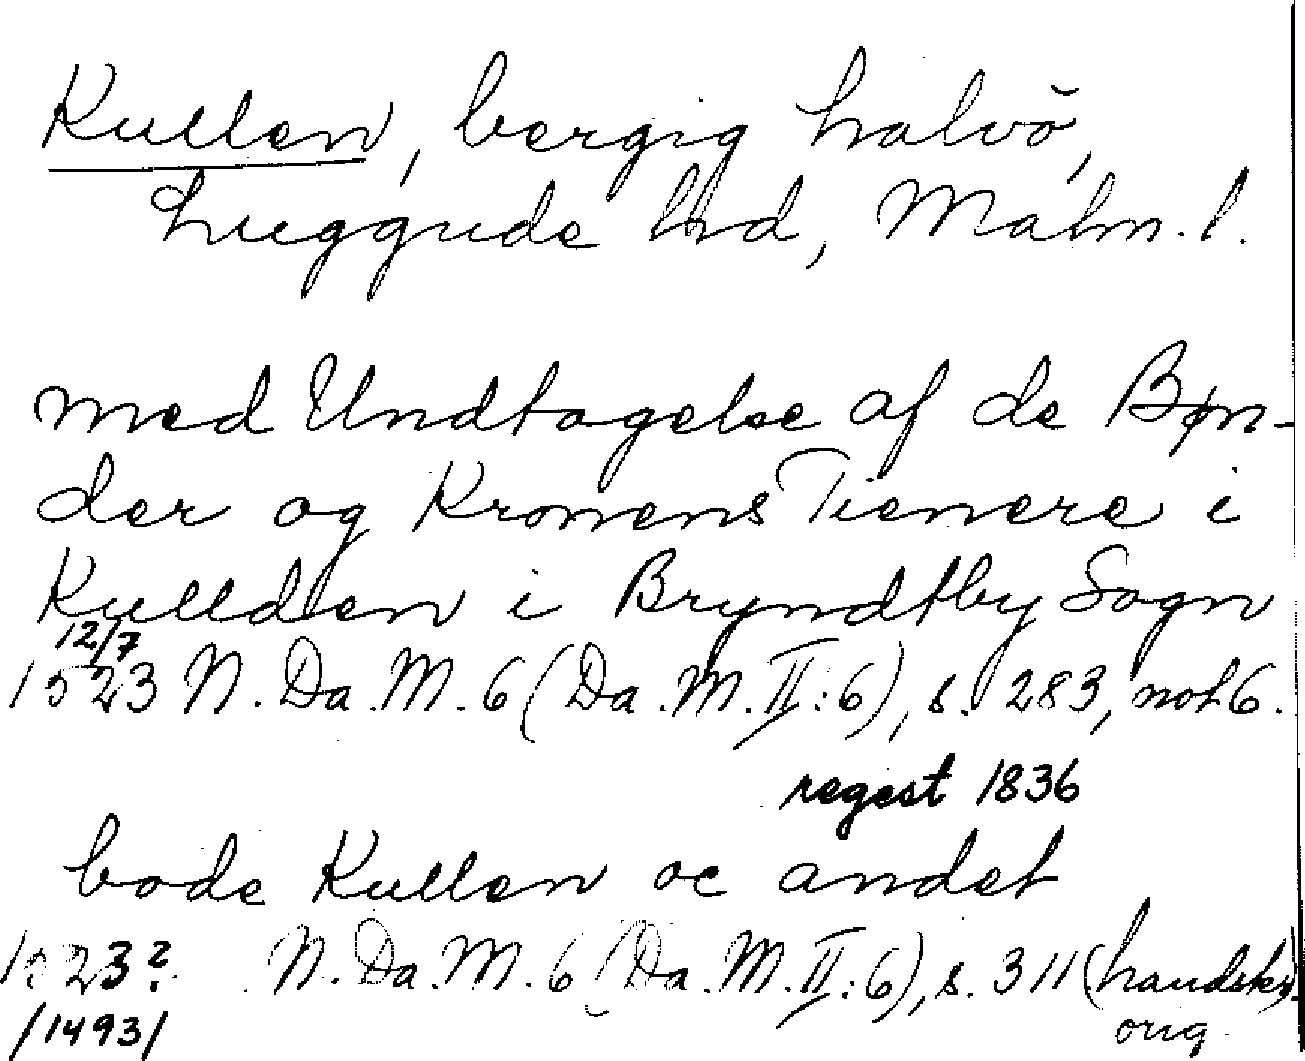 Kullen, bergig halvö,
Luggude hd, Malm. l.
med Undtagelse af de Bøn-
der og Kronens Tienere i
Kullden i Bryndtby Sogn
12/7
1523 N. Da. M. 6 (Da. M. II: 6), s. 283, not 6.
regest 1836
bode Kullen oc andet
1523? N. Da. M. 6 (Da. M. II: 6), s. 311 (handskr.
/1493/ orig.